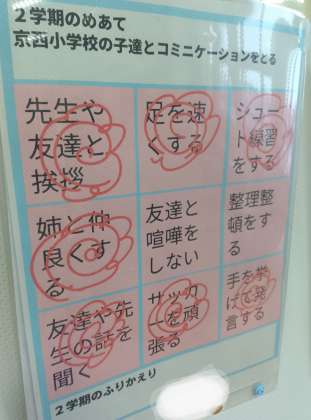 ２学期のめあて
京西小学校の子達とコミニケーションをとる
先生や
友達と
挨拶
足を速
くする
シュー
ト練習
をする
姉と仲
良くす
る
友達と
喧嘩を
しない
整理整
頓をす
る
友達や先
生の話を
聞く
サッカ
ーを頑
張る
手を挙
げて発
言する
２学期のふりかえり